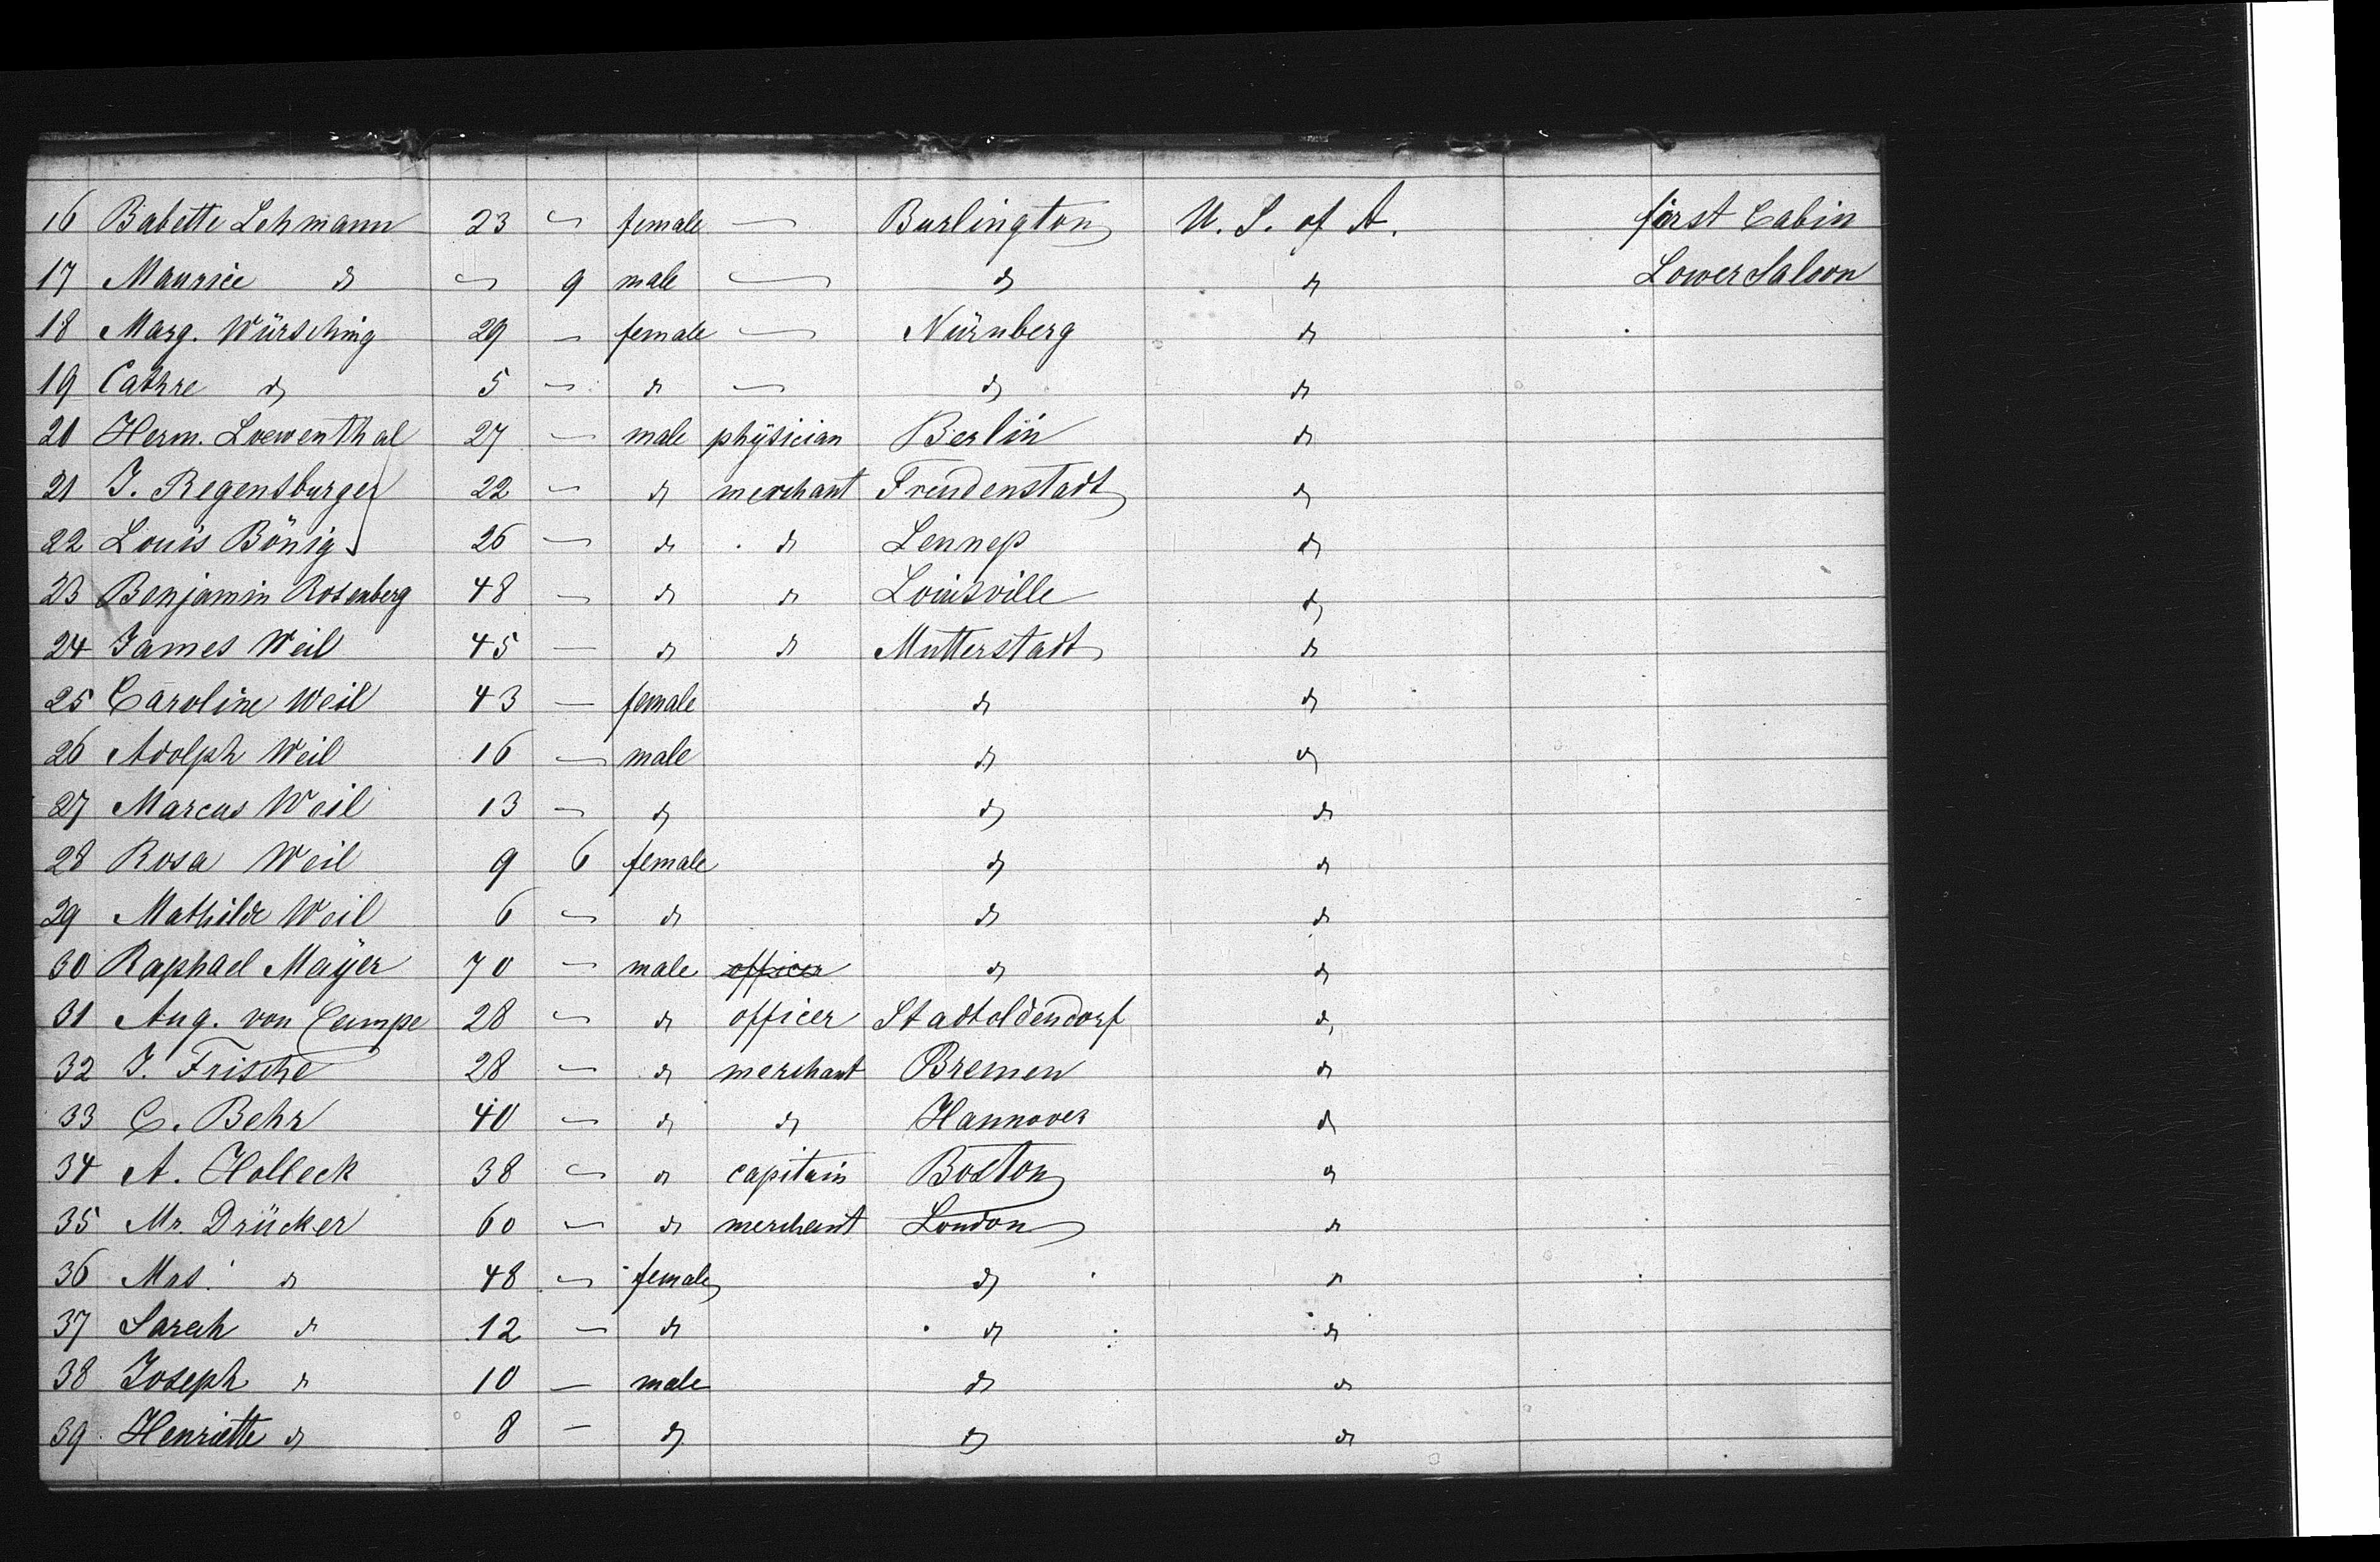 16 Babette Lehmann 23 — female — Burlington U. S. of A. first Cabin
17 Maurice do — 9 male — do do Lower Saloon
18 Marg. Würsching 29 — female — Nürnberg do
19 Cathre do 5 — do — do do
20 Herm. Loewenthal 27 — male physician Berlin do
21 J. Regensburger 22 — do merchant Freudenstadt do
22 Louis Bönig 26 — do do Lennep do
23 Benjamin Rosenberg 48 — do do Louisville do
24 James Weil 45 — do do Mutterstadt do
25 Caroline Weil 43 — female do do
26 Adolph Weil 16 — male do do
27 Marcus Weil 13 — do do do
28 Rosa Weil 9 6 female do do
29 Mathilde Weil 6 — do do do
30 Raphael Mayer 70 — male officer do do
31 Aug. von Campe 28 — do officer Stadtoldendorf do
32 J. Frische 28 — do merchant Bremen do
33 C. Behr 40 — do do Hannover do
34 A. Holleck 38 — do capitain Boston do
35 Mr. Drücker 60 — do merchant London do
36 Mrs. do 48 — female do do
37 Sarah do 12 — do do do
38 Joseph do 10 — male do do
39 Henriette do 8 — do do do